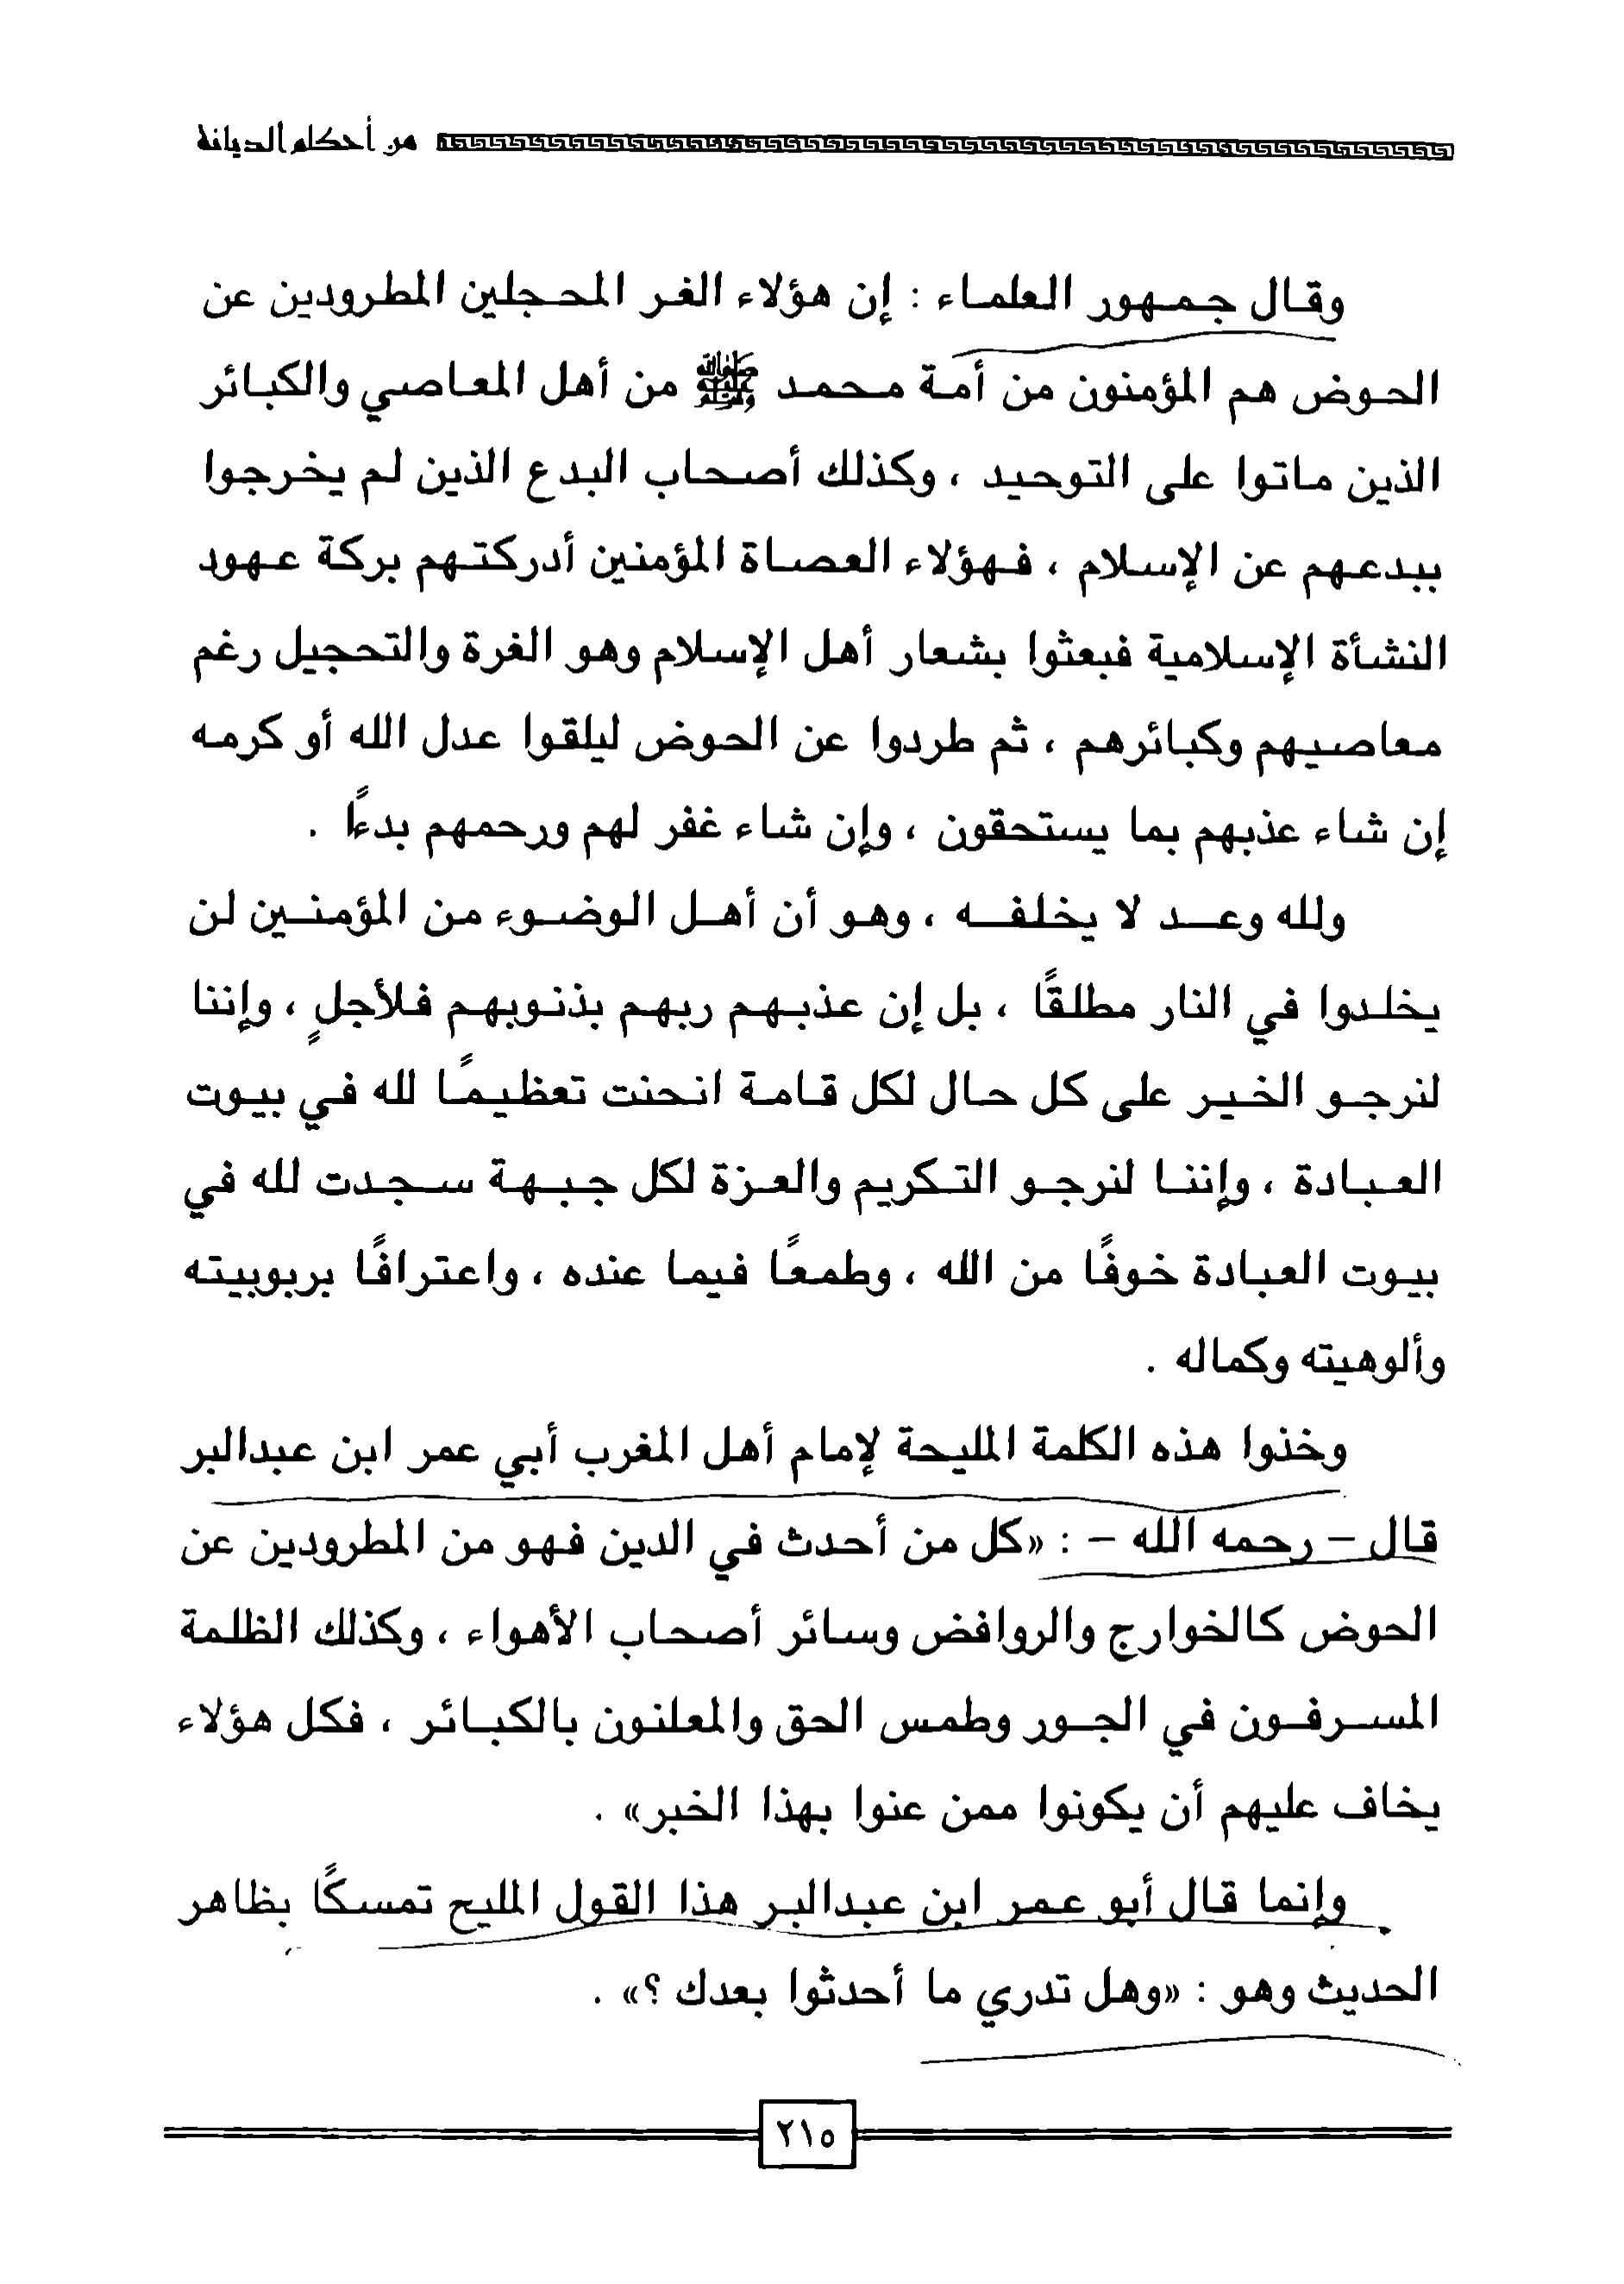 من أحكام الديانة
وقال جمهور العلماء : إن هؤلاء الغر المحجلين المطرودين عن
الحوض هم المؤمنون من أمة محمد ﷺ من أهل المعاصي والكبائر
الذين ماتوا على التوحيد ، وكذلك أصحاب البدع الذين لم يخرجوا
ببدعهم عن الإسلام ، فهؤلاء العصاة المؤمنين أدركتهم بركة عهود
النشأة الإسلامية فبعثوا بشعار أهل الإسلام وهو الغرة والتحجيل رغم
معاصيهم وكبائرهم ، ثم طردوا عن الحوض ليلقوا عدل الله أو كرمه
إن شاء عذبهم بما يستحقون ، وإن شاء غفر لهم ورحمهم بدءاً .
ولله وعد لا يخلفه ، وهو أن أهل الوضوء من المؤمنين لن
يخلدوا في النار مطلقًا ، بل إن عذبهم ربهم بذنوبهم فلأجلٍ ، وإننا
لنرجو الخير على كل حال لكل قامة انحنت تعظيمًا لله في بيوت
العبادة ، وإننا لنرجو التكريم والعزة لكل جبهة سجدت لله في
بيوت العبادة خوفًا من الله ، وطمعًا فيما عنده ، واعترافًا بربوبيته
وألوهيته وكماله .
وخذوا هذه الكلمة المليحة لإمام أهل المغرب أبي عمر ابن عبدالبر
قال – رحمه الله – : «كل من أحدث في الدين فهو من المطرودين عن
الحوض كالخوارج والروافض وسائر أصحاب الأهواء ، وكذلك الظلمة
المسرفون في الجور وطمس الحق والمعلنون بالكبائر ، فكل هؤلاء
يخاف عليهم أن يكونوا ممن عنوا بهذا الخبر» .
وإنما قال أبو عمر ابن عبدالبر هذا القول المليح تمسكًا بظاهر
الحديث وهو : «وهل تدري ما أحدثوا بعدك ؟» .
٢١٥